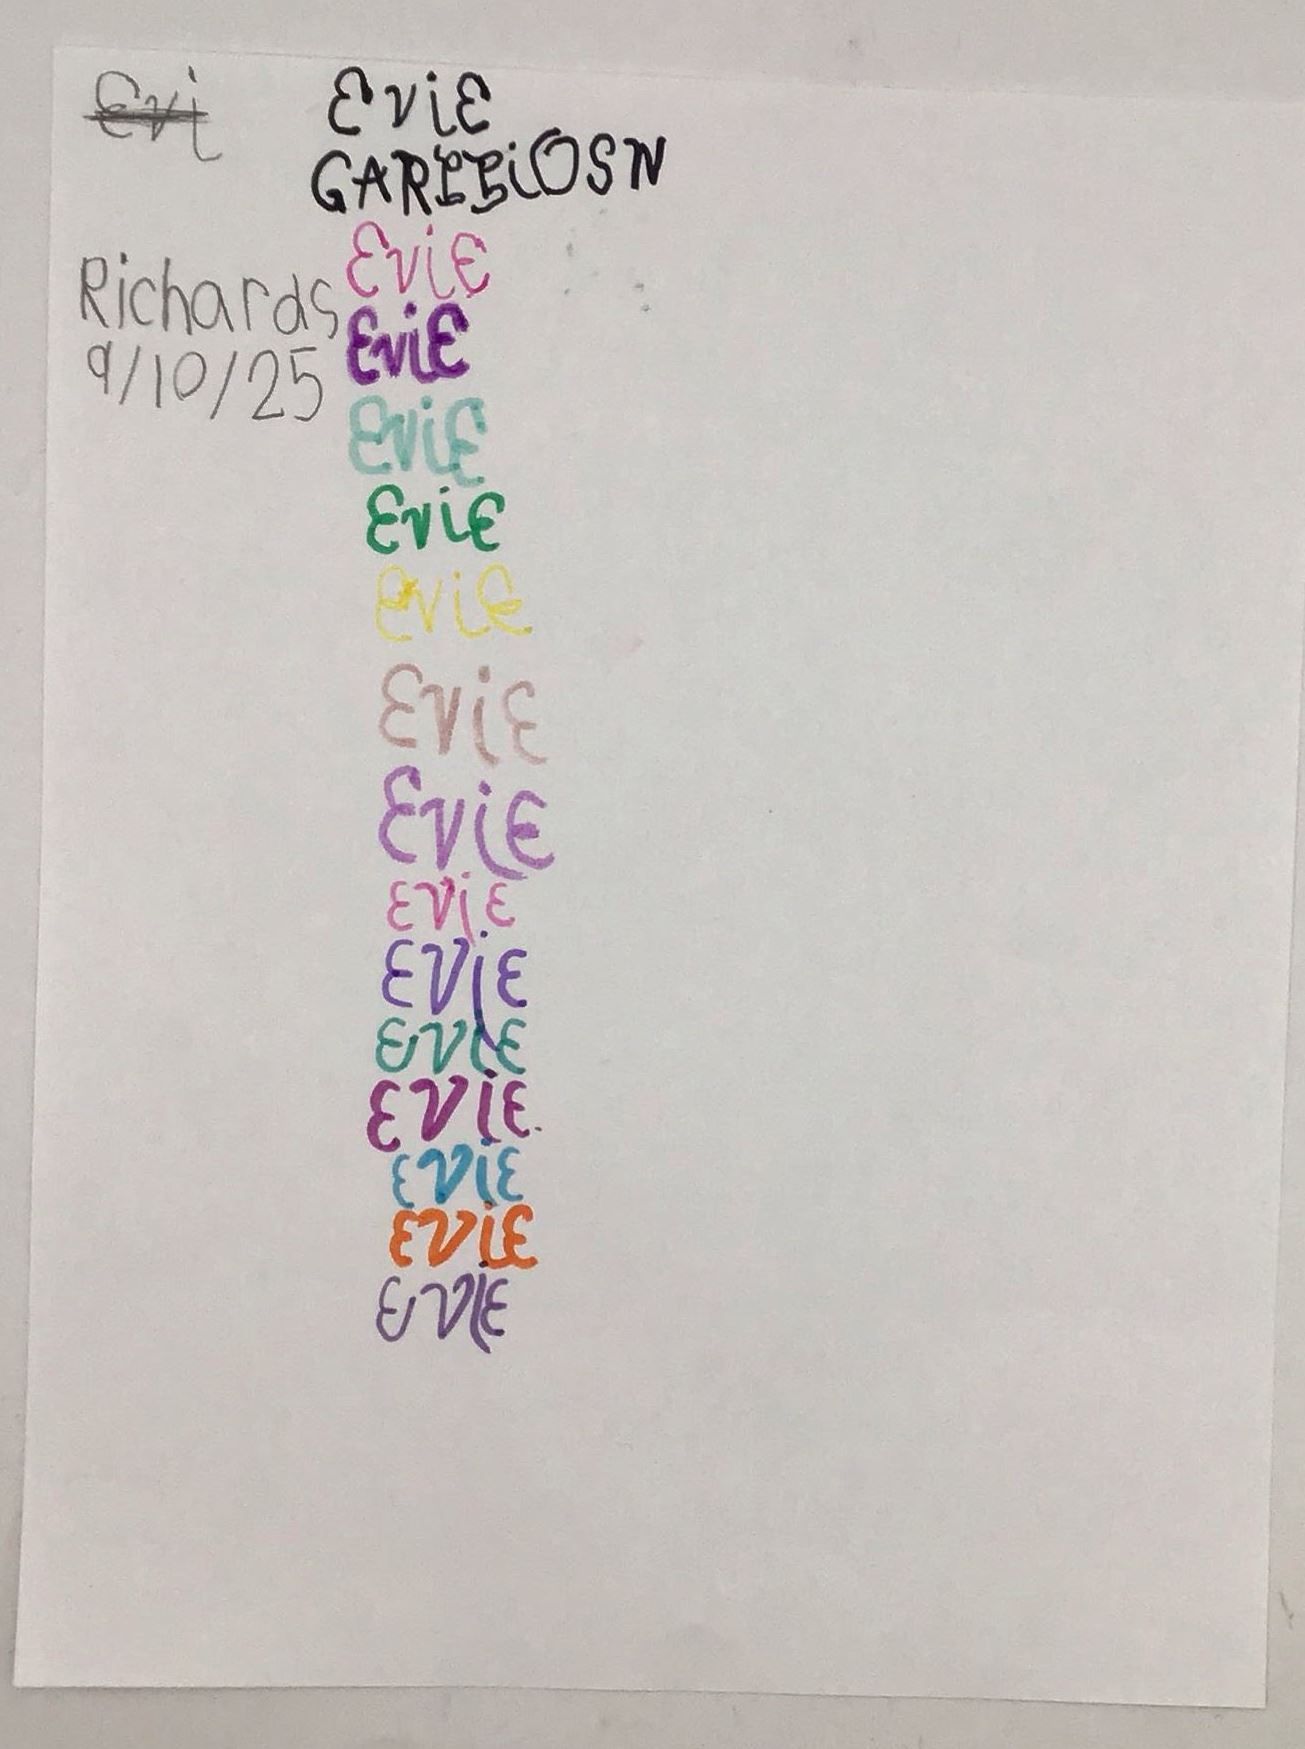 Evi
EviE
Richards
9/10/25
EviE
EviE
EviE
EviE
EviE
EviE
EviE
EviE
EviE
EviE
EviE
EviE
EviE
EviE